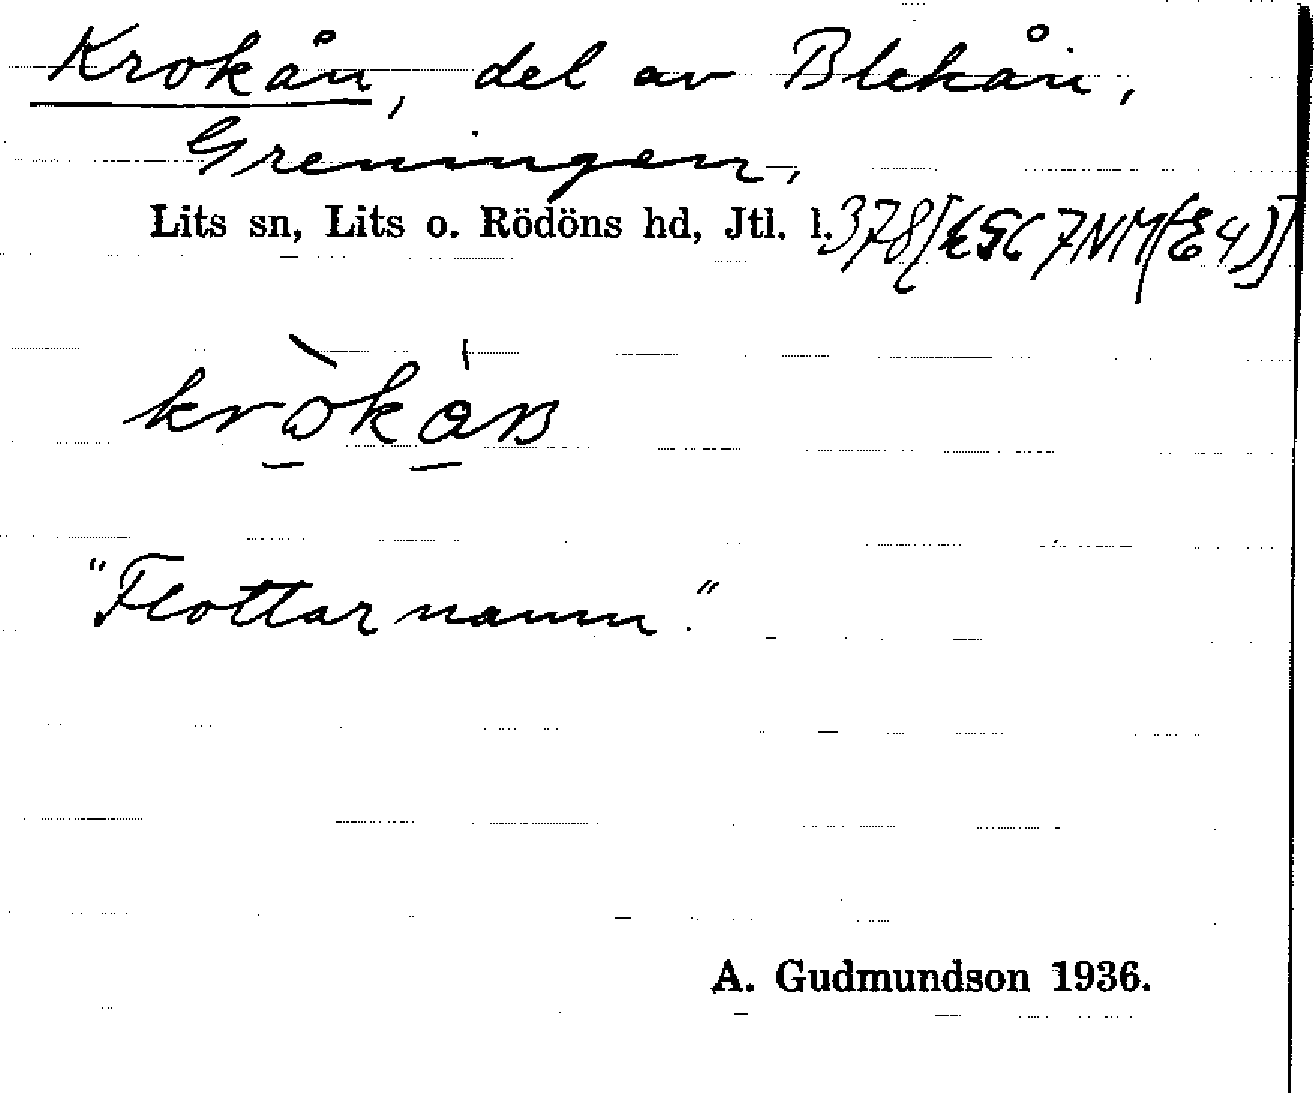 Krokån, del av Blekån,
Greningen,
Lits sn, Lits o. Rödöns hd, Jtl. l. 378[ESC 7NM(E4)]
kròkån
"Flottarnamn."
A. Gudmundson 1936.